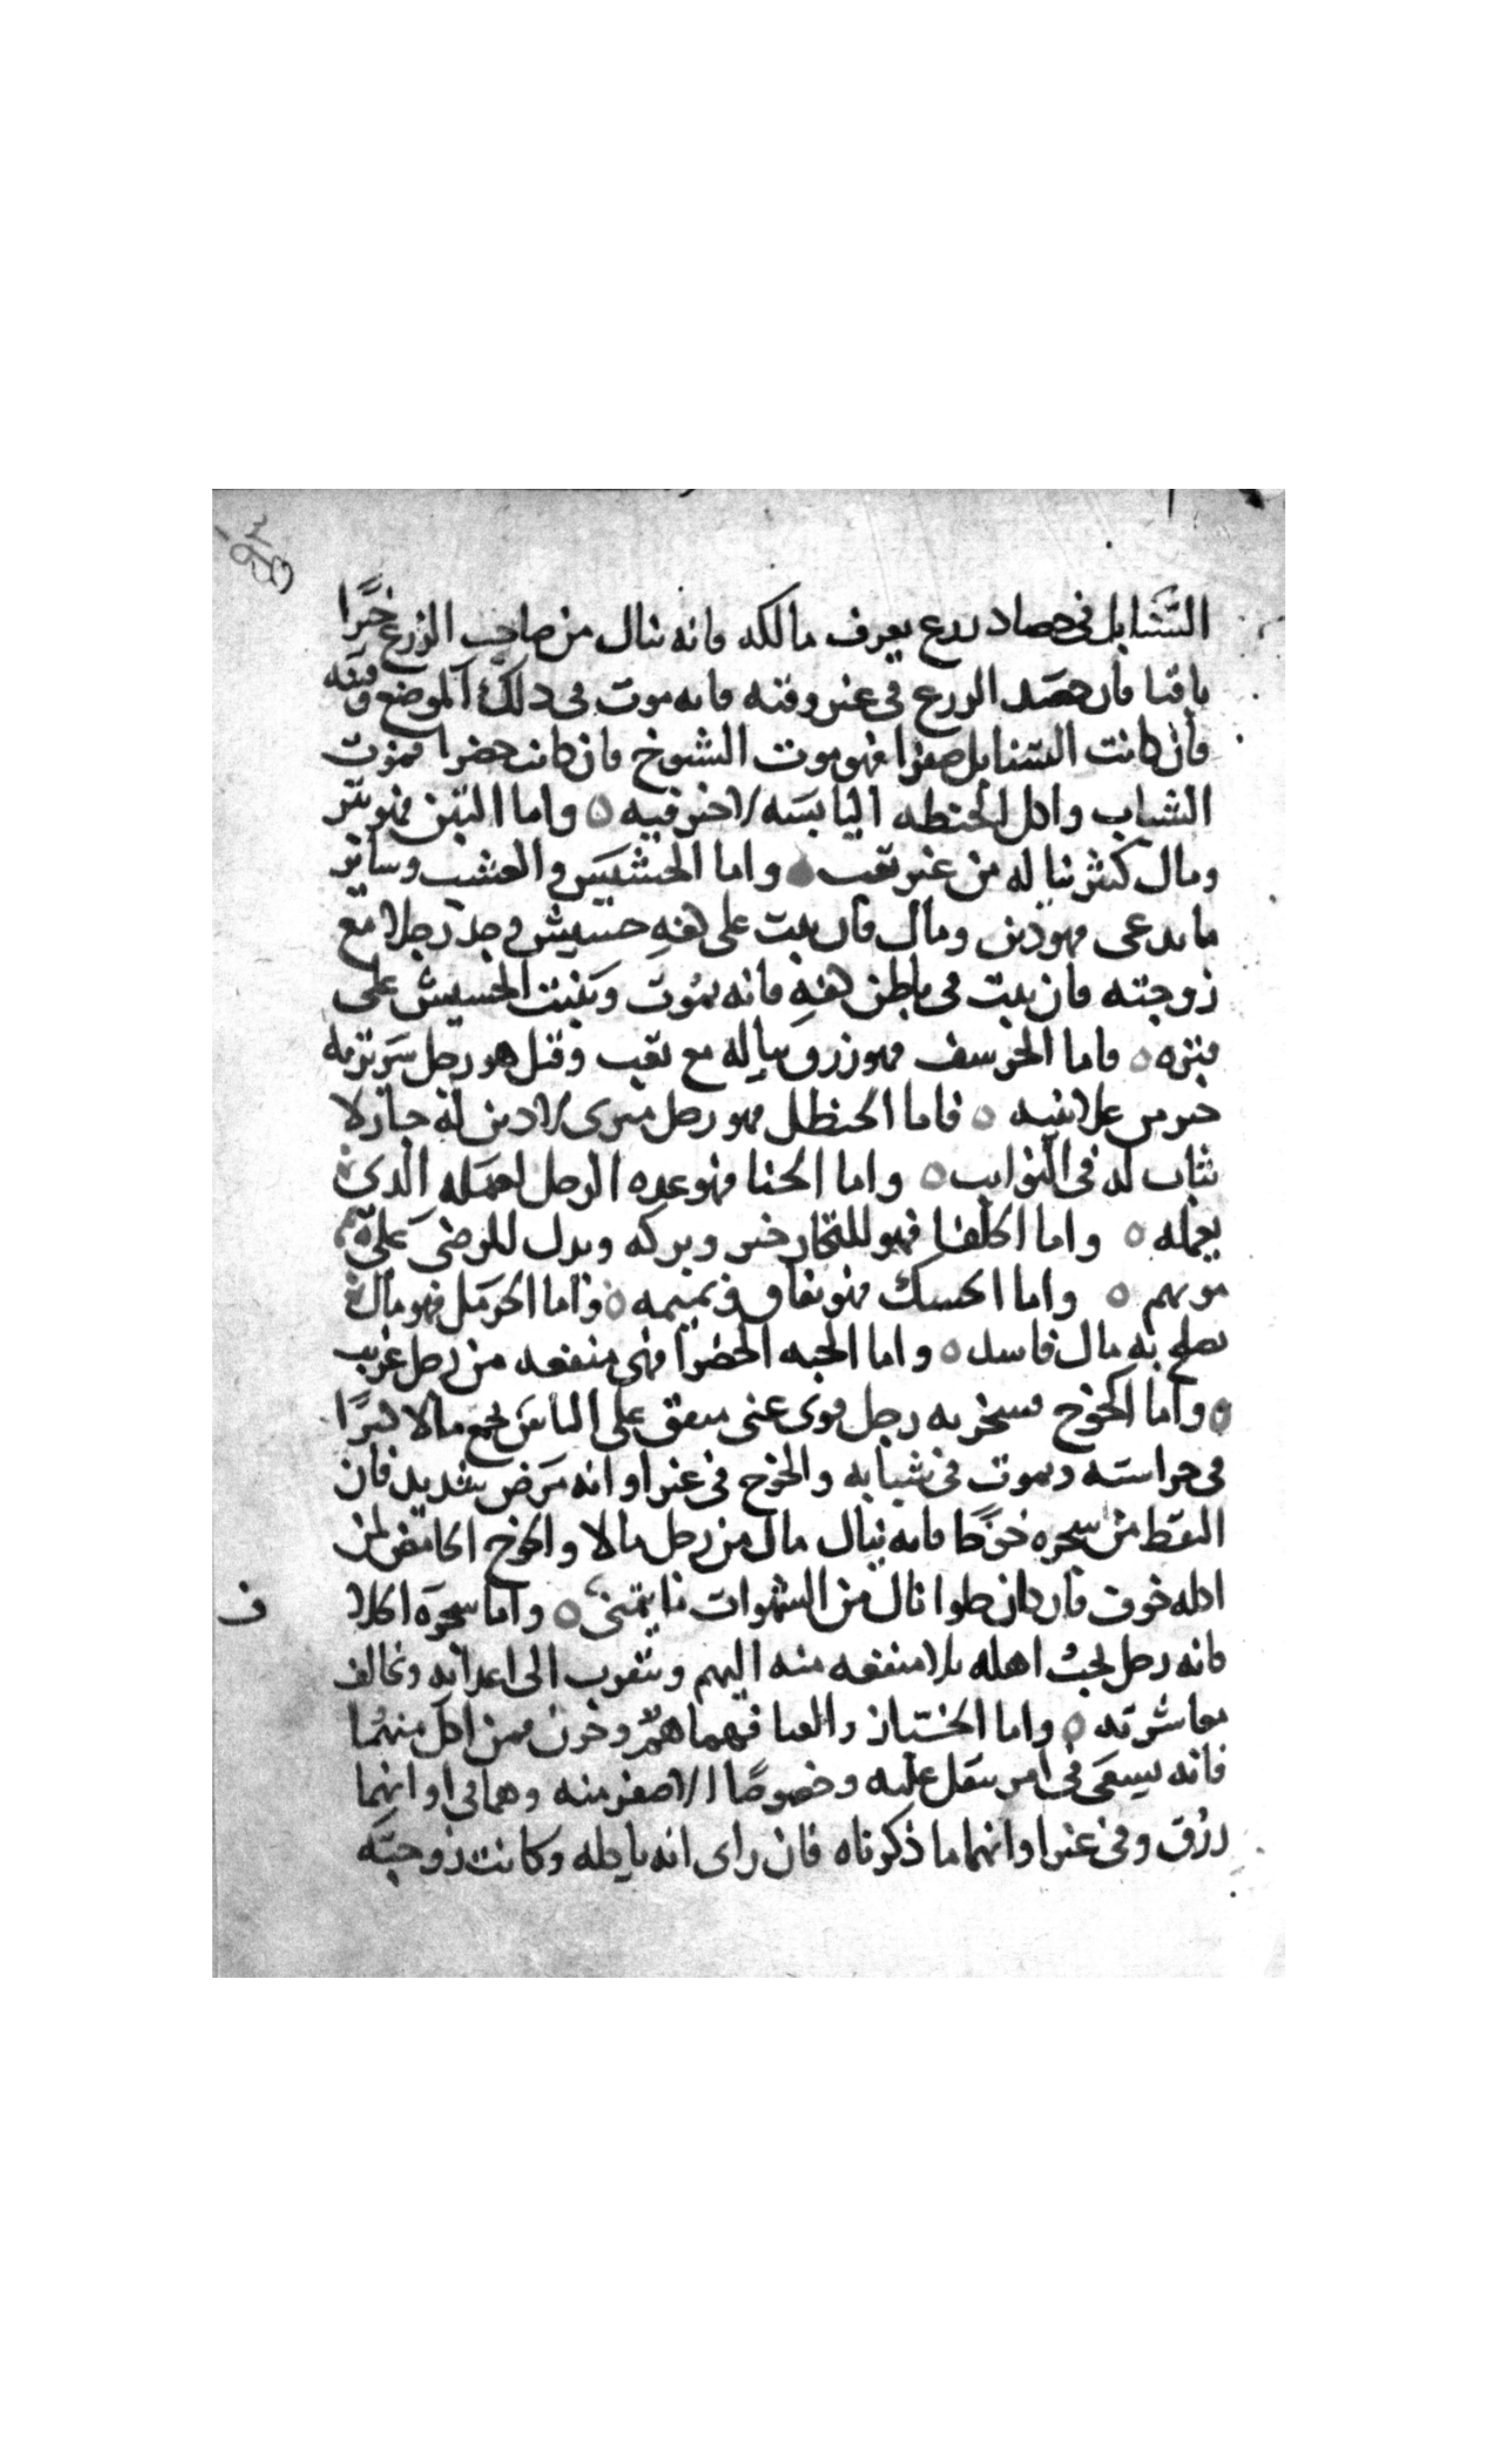 السنابل فى حصاد زرع يعرف مالكه فانه ينال من صاحب الزرع خيرا
باقيا فان حصد الزرع فى غير وقته فانه موت فى ذلك الموضع وفتنه
فان كانت السنابل صفرا فهو موت الشيوخ فان كانت خضرا فموت
الشباب واكل الحنطه اليابسه لا خير فيه ه واما التبن فهو تبر
ومال كثير يناله من غير تعب ه واما الحشيش والعشب وساير
ما يدعى فهو دين ومال فان نبت على كفه حشيش وجد رجلا مع
زوجته فان نبت فى باطن كفه فانه يموت وينبت الحشيش على
قبره ه فاما الحرسف فهو رزق يناله مع تعب وقيل هو رجل سريرته
خير من علانيته ه فاما الحنظل فهو رجل لا دين له جبان لا
ثبات له فى النوايب ه واما الحنا فهو عده الرجل لعمله الذى
يعمله ه واما الحلفا فهو للتجار خير وبركه ويدل للمرضى على
موتهم ه واما الحسك فهو نفاق ونميمه ه واما الحرمل فهو مال
يصلح به مال فاسد ه واما الحبه الخضرا فهى منفعه من رجل غريب
ه واما الخوخ رجل قوى غنى منفق على الناس يجمع مالا كثيرا
فى حداسته ويموت فى شبابه والخوخ فى غير اوانه مرض شديد فان
التقط من شجره خوخا فانه ينال مال من رجل مالا والخوخ الحامض لمن
اكله خوف فان كان حلوا نال من الشهوات ما يتمنى ه واما شجره الخلا
ف
فانه رجل يحب اهله بلا منفعه منه اليهم ويتقرب الى اعدايه ويخالف
معاشرته ه واما الخيار والقثا فهما هم وحزن فمن اكل منهما
فانه يسعى فى امر يثقل عليه وخصوصا الاصفر منه وهما فى اوانهما
رزق وفى غير اوانهما ما ذكرناه فان راى انه ياكله وكانت زوجته